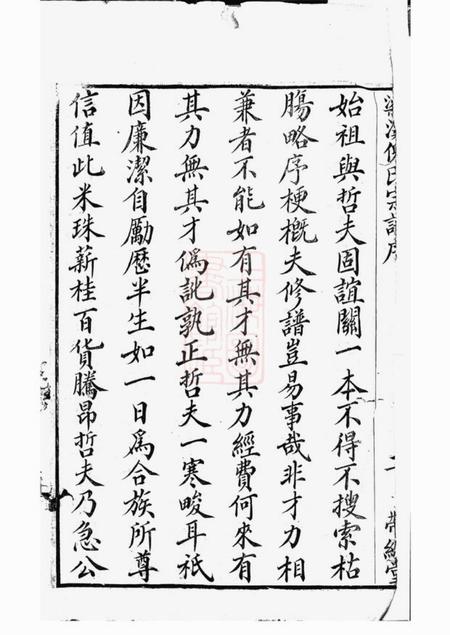 始祖與哲夫固誼關一本不得不搜索枯
腸略序梗概夫修譜豈易事哉非才力相
兼者不能如有其才無其力經費何來有
其力無其才僞訛孰正哲夫一寒畯耳祇
因廉潔自勵歷半生如一日爲合族所尊
信值此米珠薪桂百貨騰昂哲夫乃急公